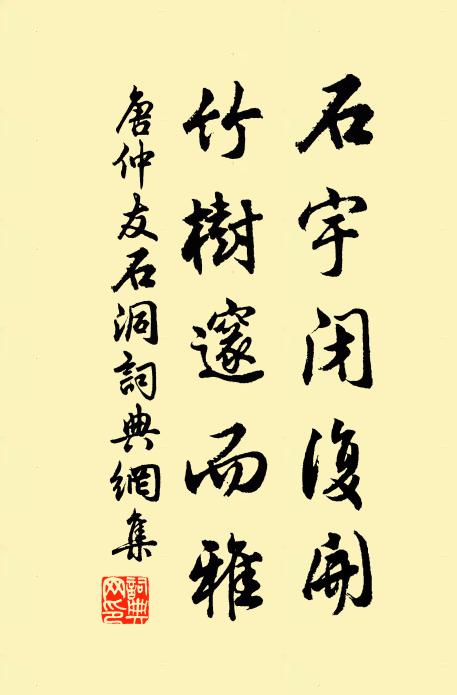 石宇闭復開
竹樹邃而雅
唐仲友石洞詞典網集
詞典网印